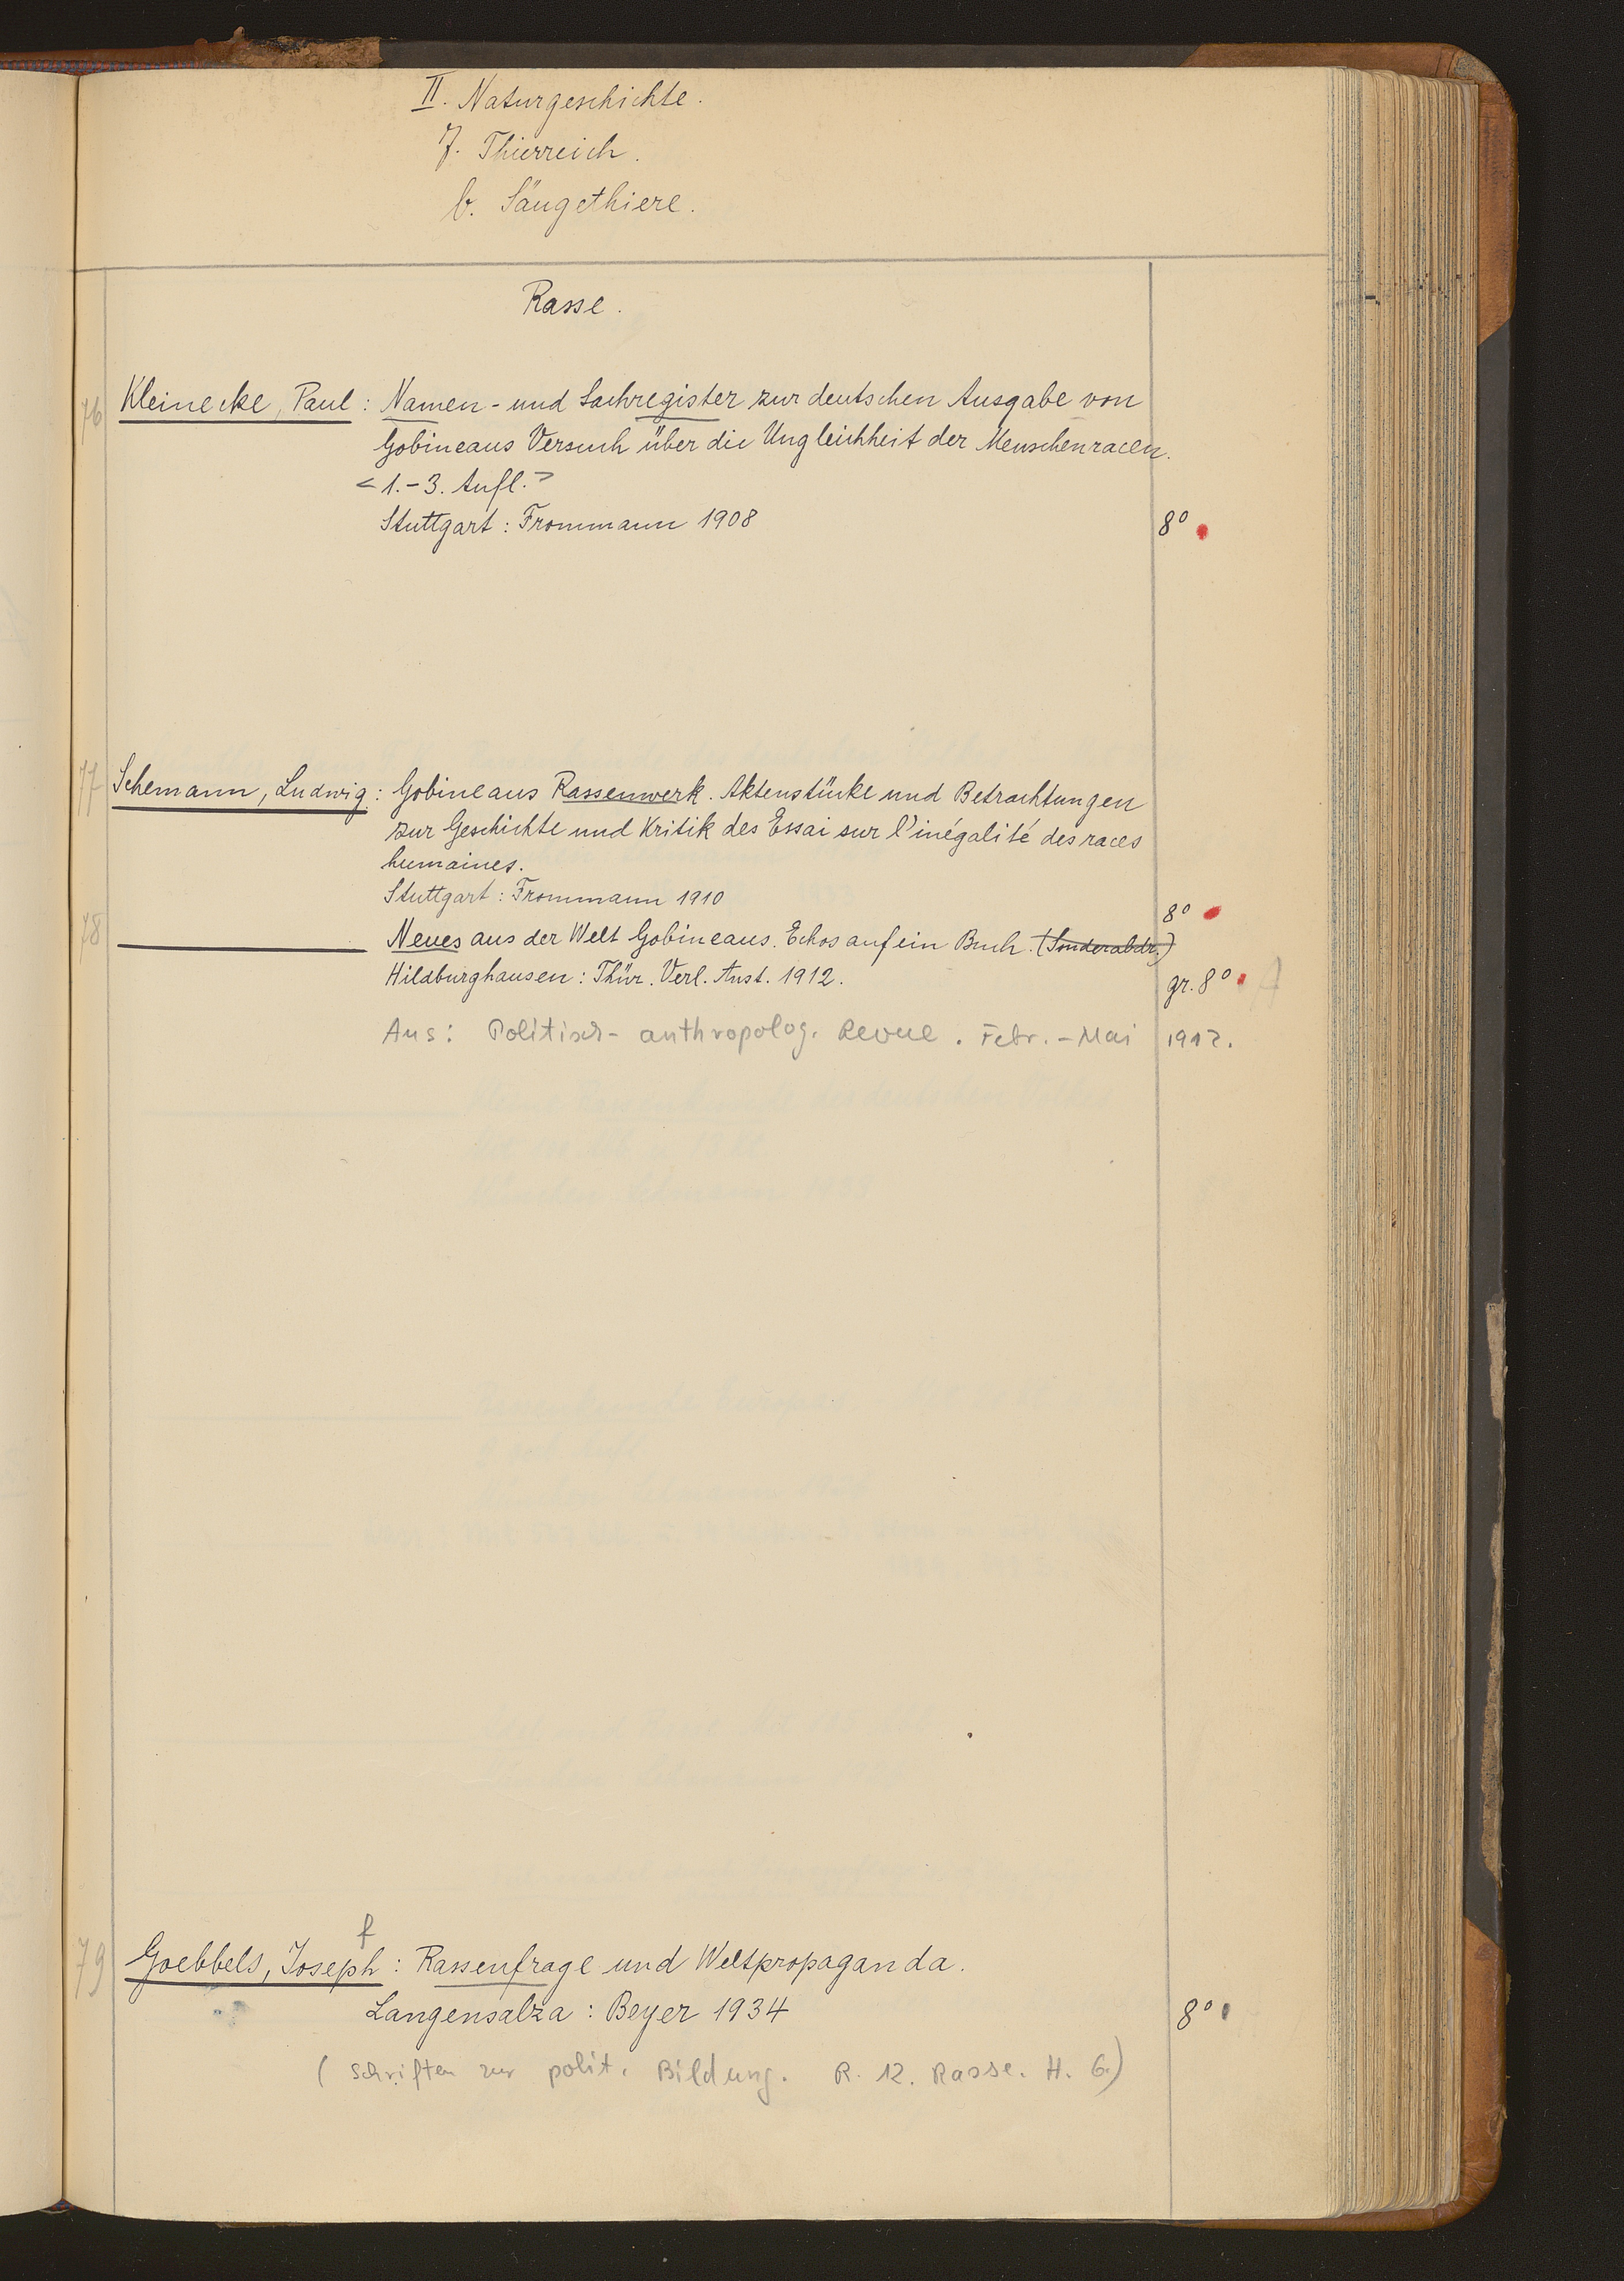 II. Naturgeschichte.
7. Thierreich.
b. Säugethiere.
Rasse.
76 Kleinecke, Paul: Namen- und Sachregister zur deutschen Ausgabe von
Gobineaus Versuch über die Ungleichheit der Menschenracen.
<1.-3. Aufl.>
Stuttgart: Frommann 1908 8°
77 Schemann, Ludwig: Gobineaus Rassenwerk. Aktenstücke und Betrachtungen
zur Geschichte und Kritik des Essai sur l'inégalité des races
humaines.
Stuttgart: Frommann 1910 8°
78 Neues aus der Welt Gobineaus. Echos auf ein Buch. (Sonderabdr.)
Hildburghausen: Thür. Verl. Anst. 1912. gr. 8° A
Aus: Politisch-anthropolog. Revue. Febr.-Mai 1912.
f
79 Goebbels, Joseph: Rassenfrage und Weltpropaganda.
Langensalza: Beyer 1934 8°
(Schriften zur polit. Bildung. R. 12. Rasse. H. 6.)